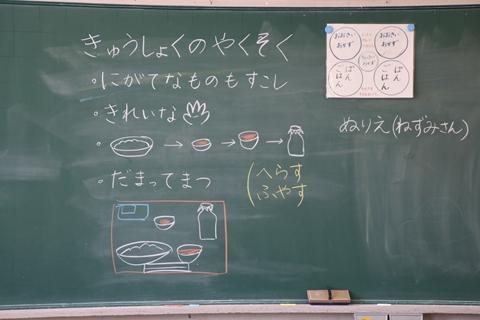 きゅうしょくのやくそく
・にがてなものもすこし
・きれいな
・ → → →
・だまってまつ
(へらす
ふやす
おおきい
おかず
おおきい
おかず
ごはん
ぱん
ごはん
ぱん
ぬりえ(ねずみさん)